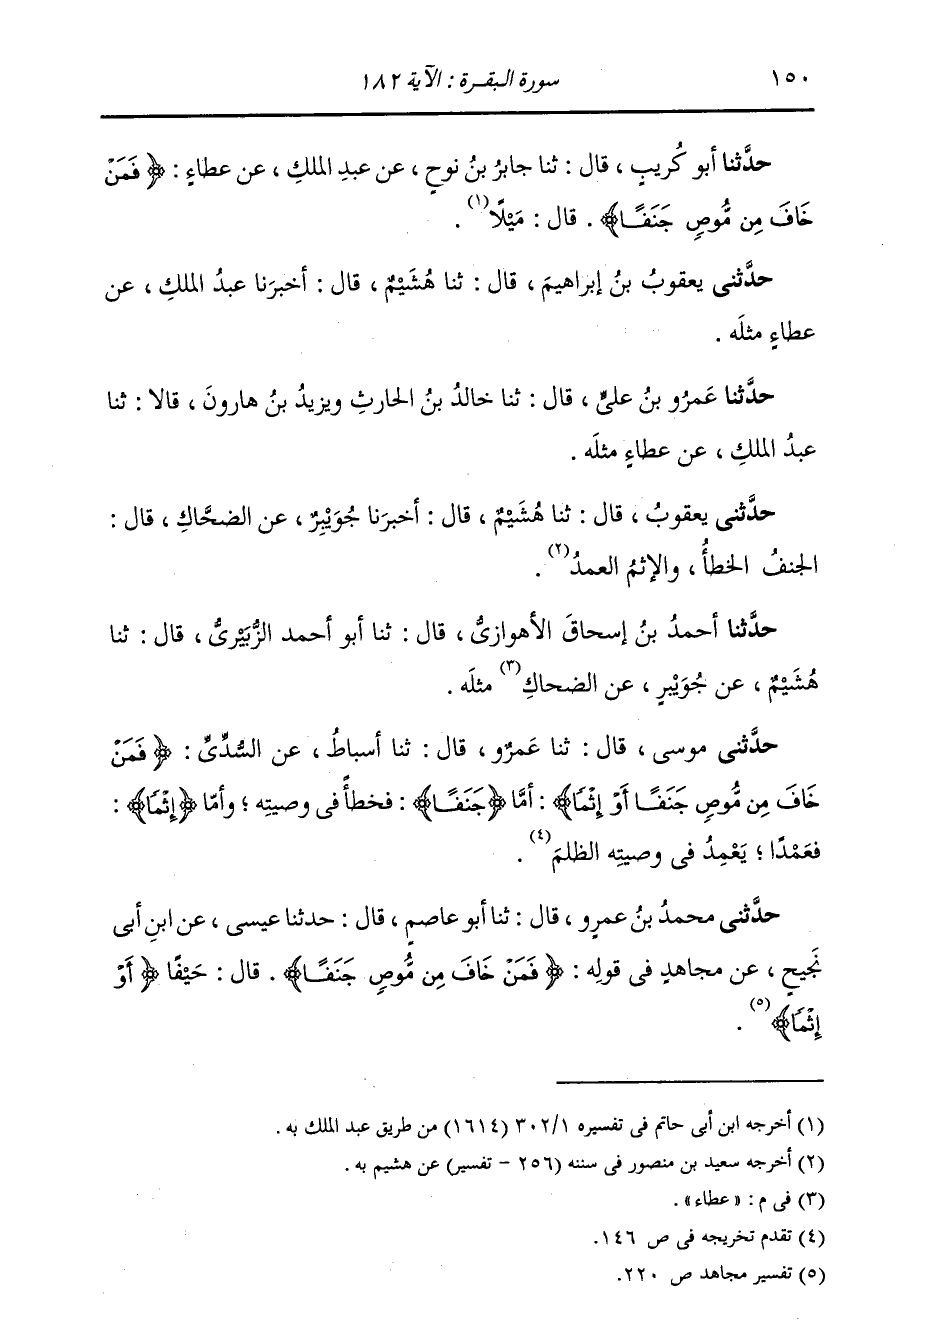 ١٥٠ سورة البقرة : الآية ١٨٢
حدَّثنا أبو كُريبٍ ، قال : ثنا جابرُ بنُ نوحٍ ، عن عبدِ الملكِ ، عن عطاءٍ : ﴿ فَمَنْ
خَافَ مِن مُّوصٍ جَنَفًا﴾ . قال : مَيْلًا(١) .
حدَّثنى يعقوبُ بنُ إبراهيمَ ، قال : ثنا هُشَيْمٌ ، قال : أخبرَنا عبدُ الملكِ ، عن
عطاءٍ مثلَه .
حدَّثنا عَمرُو بنُ علىٍّ ، قال : ثنا خالدُ بنُ الحارثِ ويزيدُ بنُ هارونَ ، قالا : ثنا
عبدُ الملكِ ، عن عطاءٍ مثلَه .
حدَّثنى يعقوبُ ، قال : ثنا هُشَيْمٌ ، قال : أخبرَنا جُوَيْبِرٌ ، عن الضحَّاكِ ، قال :
الجنفُ الخطأُ ، والإثمُ العمدُ(٢) .
حدَّثنا أحمدُ بنُ إسحاقَ الأهوازىُّ ، قال : ثنا أبو أحمد الزُّبَيْرىُّ ، قال : ثنا
هُشَيْمٌ ، عن جُوَيْبرٍ ، عن الضحاكِ(٣) مثلَه .
حدَّثنى موسى ، قال : ثنا عَمرٌو ، قال : ثنا أسباطُ ، عن السُّدِّىِّ : ﴿ فَمَنْ
خَافَ مِن مُّوصٍ جَنَفًا أَوْ إِثْمًا﴾ : أمَّا ﴿جَنَفًا﴾ : فخطأً فى وصيتِه ؛ وأمّا ﴿إِثْمًا﴾ :
فعَمْدًا ؛ يَعْمِدُ فى وصيتِه الظلمَ(٤) .
حدَّثنى محمدُ بنُ عمرٍو ، قال : ثنا أبو عاصمٍ ، قال : حدثنا عيسى ، عن ابنِ أبى
نَجيحٍ ، عن مجاهدٍ فى قولِه : ﴿ فَمَنْ خَافَ مِن مُّوصٍ جَنَفًا﴾ . قال : حَيْفًا ﴿ أَوْ
إِثْمًا﴾(٥) .
(١) أخرجه ابن أبى حاتم فى تفسيره ٣٠٢/١ (١٦١٤) من طريق عبد الملك به .
(٢) أخرجه سعيد بن منصور فى سننه (٢٥٦ - تفسير) عن هشيم به .
(٣) فى م : « عطاء» .
(٤) تقدم تخريجه فى ص ١٤٦.
(٥) تفسير مجاهد ص ٢٢٠.